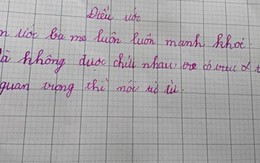 Điều ước
n ước ba mẹ luôn luôn mạnh khỏe
là không được chửi nhau,
quan trọng thì nói từ từ.